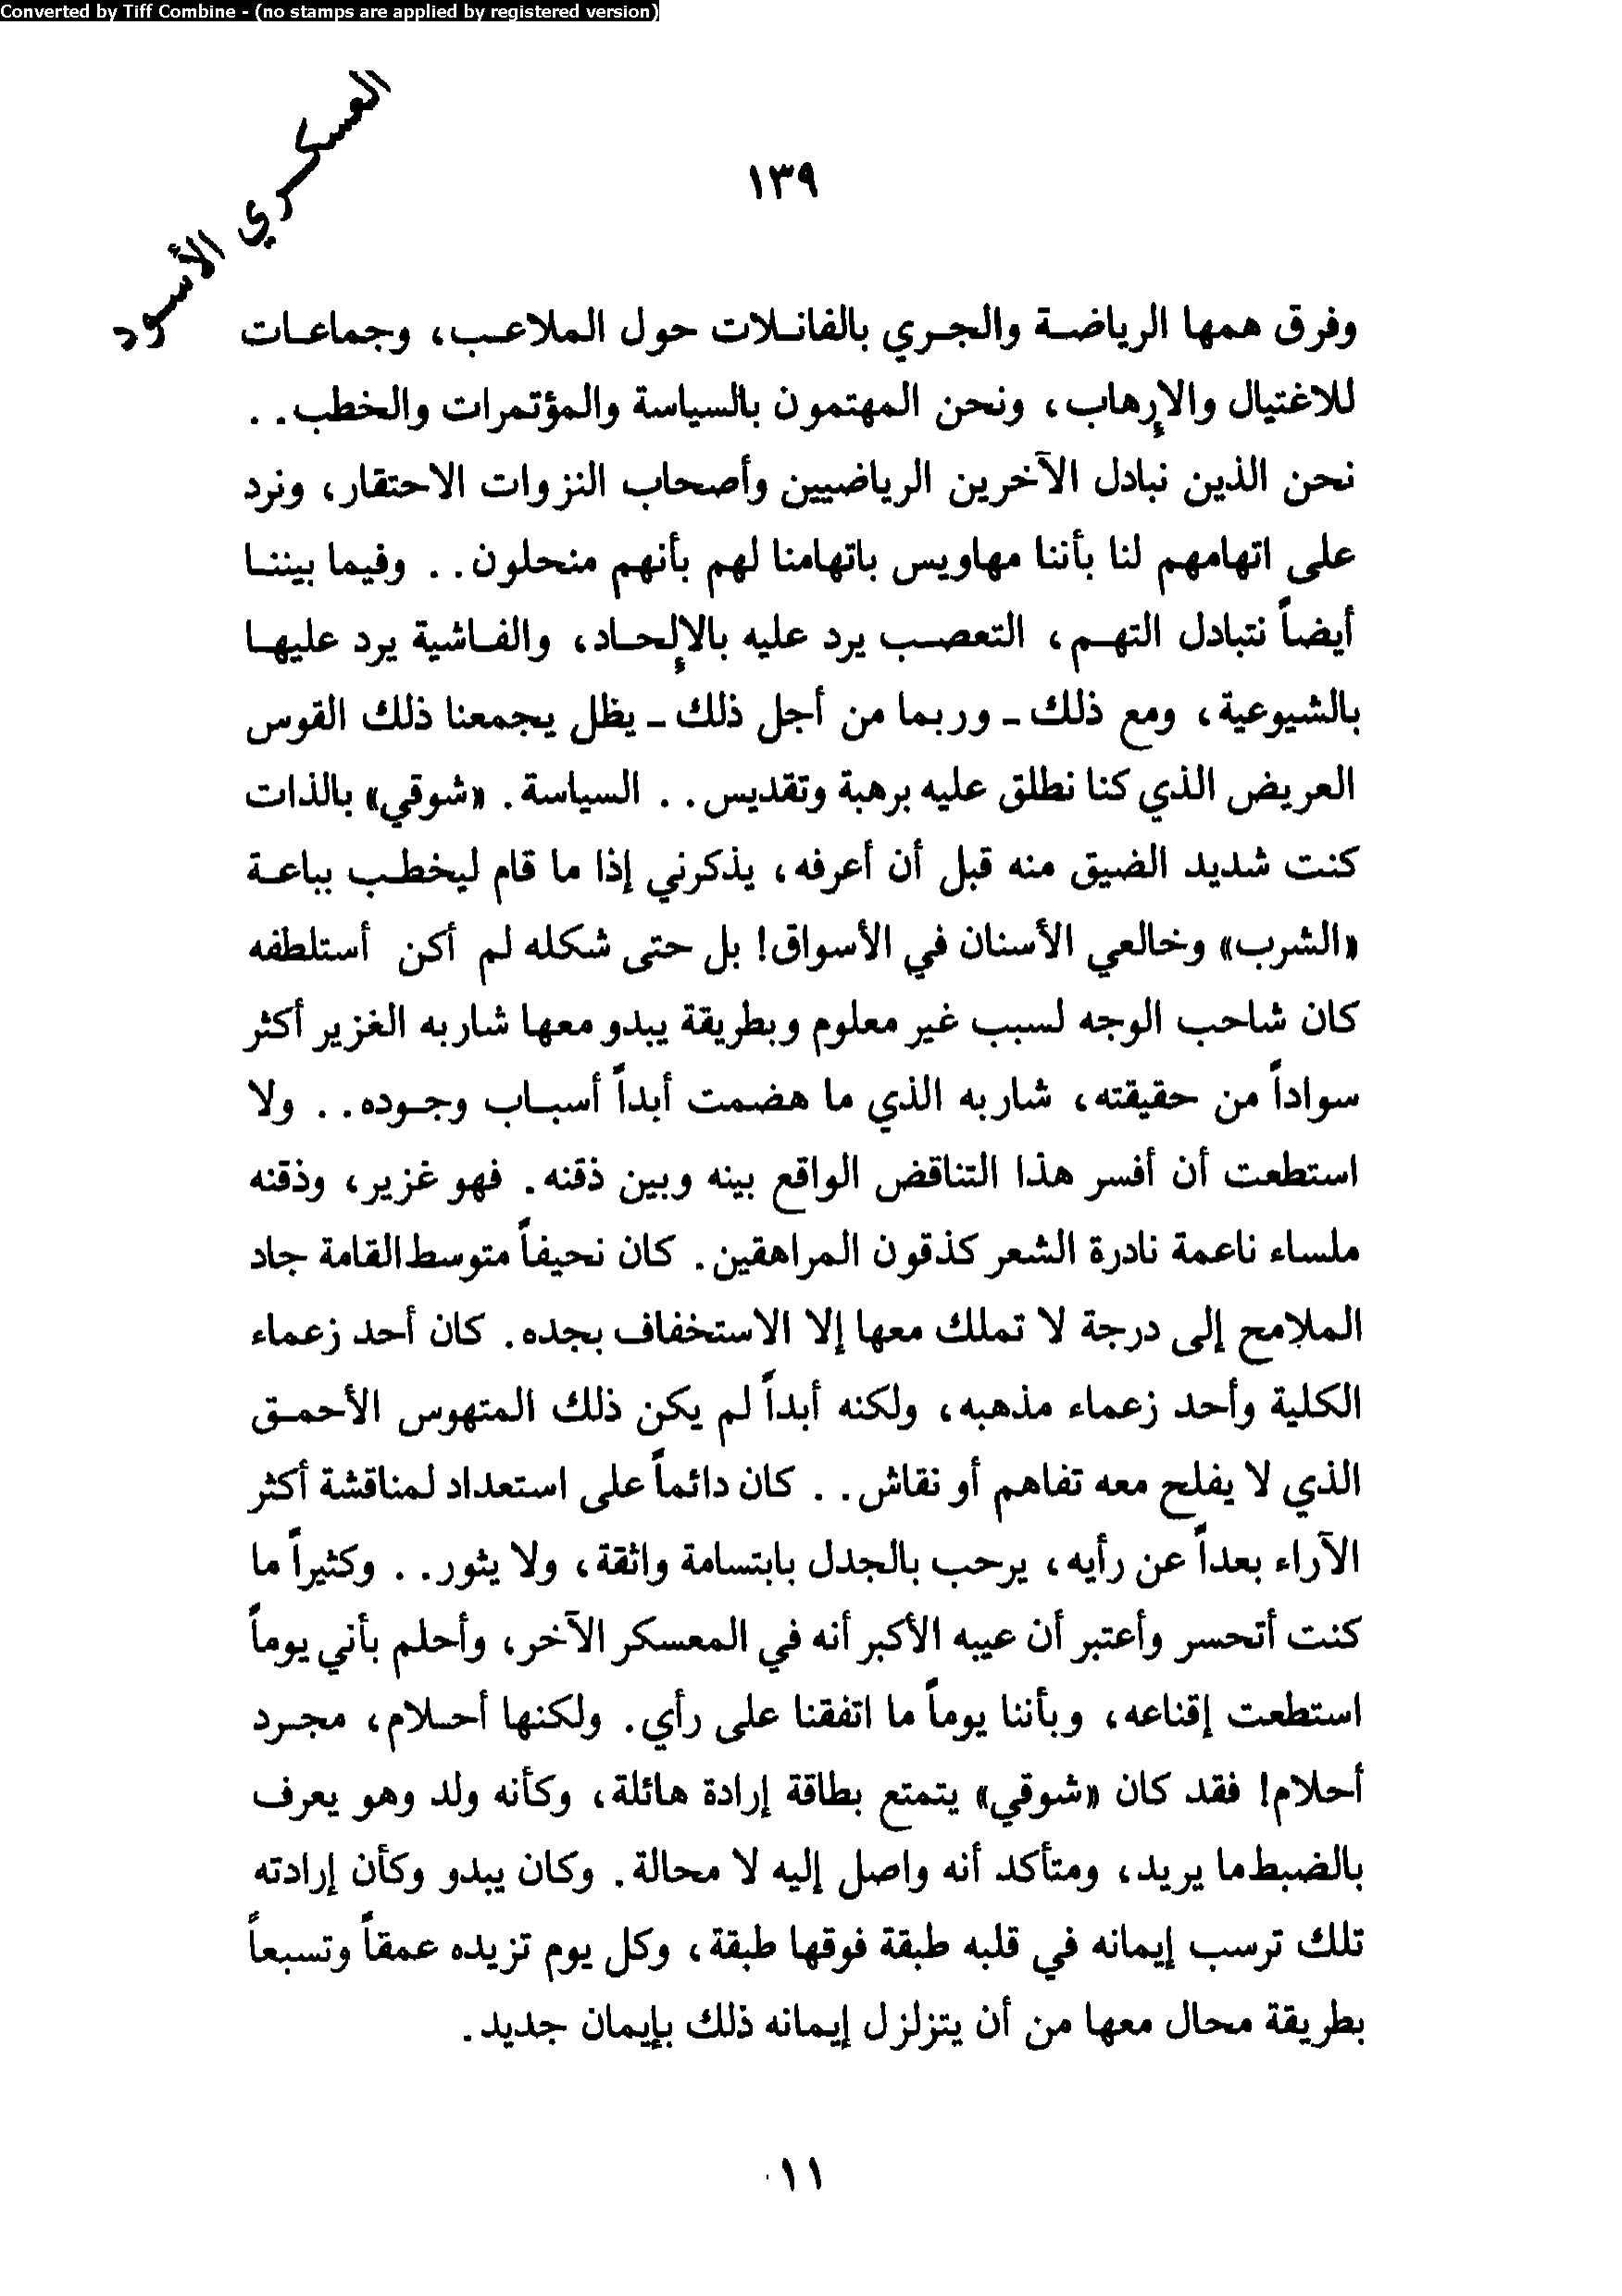 Converted by Tiff Combine - (no stamps are applied by registered version)
العسكري الأسود
١٣٩
وفرق همها الرياضة والجري بالفانلات حول الملاعب، وجماعات
للاغتيال والإرهاب، ونحن المهتمون بالسياسة والمؤتمرات والخطب..
نحن الذين نبادل الآخرين الرياضيين وأصحاب النزوات الاحتقار، ونرد
على اتهامهم لنا بأننا مهاويس باتهامنا لهم بأنهم منحلون.. وفيما بيننا
أيضاً نتبادل التهم، التعصب يرد عليه بالإلحاد، والفاشية يرد عليها
بالشيوعية، ومع ذلك ـ وربما من أجل ذلك ـ يظل يجمعنا ذلك القوس
العريض الذي كنا نطلق عليه برهبة وتقديس.. السياسة. «شوقي» بالذات
كنت شديد الضيق منه قبل أن أعرفه، يذكرني إذا ما قام ليخطب بباعة
«الشرب» وخالعي الأسنان في الأسواق! بل حتى شكله لم أكن أستلطفه
كان شاحب الوجه لسبب غير معلوم وبطريقة يبدو معها شاربه الغزير أكثر
سواداً من حقيقته، شاربه الذي ما هضمت أبداً أسباب وجوده.. ولا
استطعت أن أفسر هذا التناقض الواقع بينه وبين ذقنه. فهو غزير، وذقنه
ملساء ناعمة نادرة الشعر كذقون المراهقين. كان نحيفاً متوسط القامة جاد
الملامح إلى درجة لا تملك معها إلا الاستخفاف بجده. كان أحد زعماء
الكلية وأحد زعماء مذهبه، ولكنه أبداً لم يكن ذلك المتهوس الأحمق
الذي لا يفلح معه تفاهم أو نقاش.. كان دائماً على استعداد لمناقشة أكثر
الآراء بعداً عن رأيه، يرحب بالجدل بابتسامة واثقة، ولا يثور.. وكثيراً ما
كنت أتحسر وأعتبر أن عيبه الأكبر أنه في المعسكر الآخر، وأحلم بأني يوماً
استطعت إقناعه، وبأننا يوماً ما اتفقنا على رأي. ولكنها أحلام، مجرد
أحلام! فقد كان «شوقي» يتمتع بطاقة إرادة هائلة، وكأنه ولد وهو يعرف
بالضبط ما يريد، ومتأكد أنه واصل إليه لا محالة. وكان يبدو وكأن إرادته
تلك ترسب إيمانه في قلبه طبقة فوقها طبقة، وكل يوم تزيده عمقاً وتسبعاً
بطريقة محال معها من أن يتزلزل إيمانه ذلك بإيمان جديد.
١١